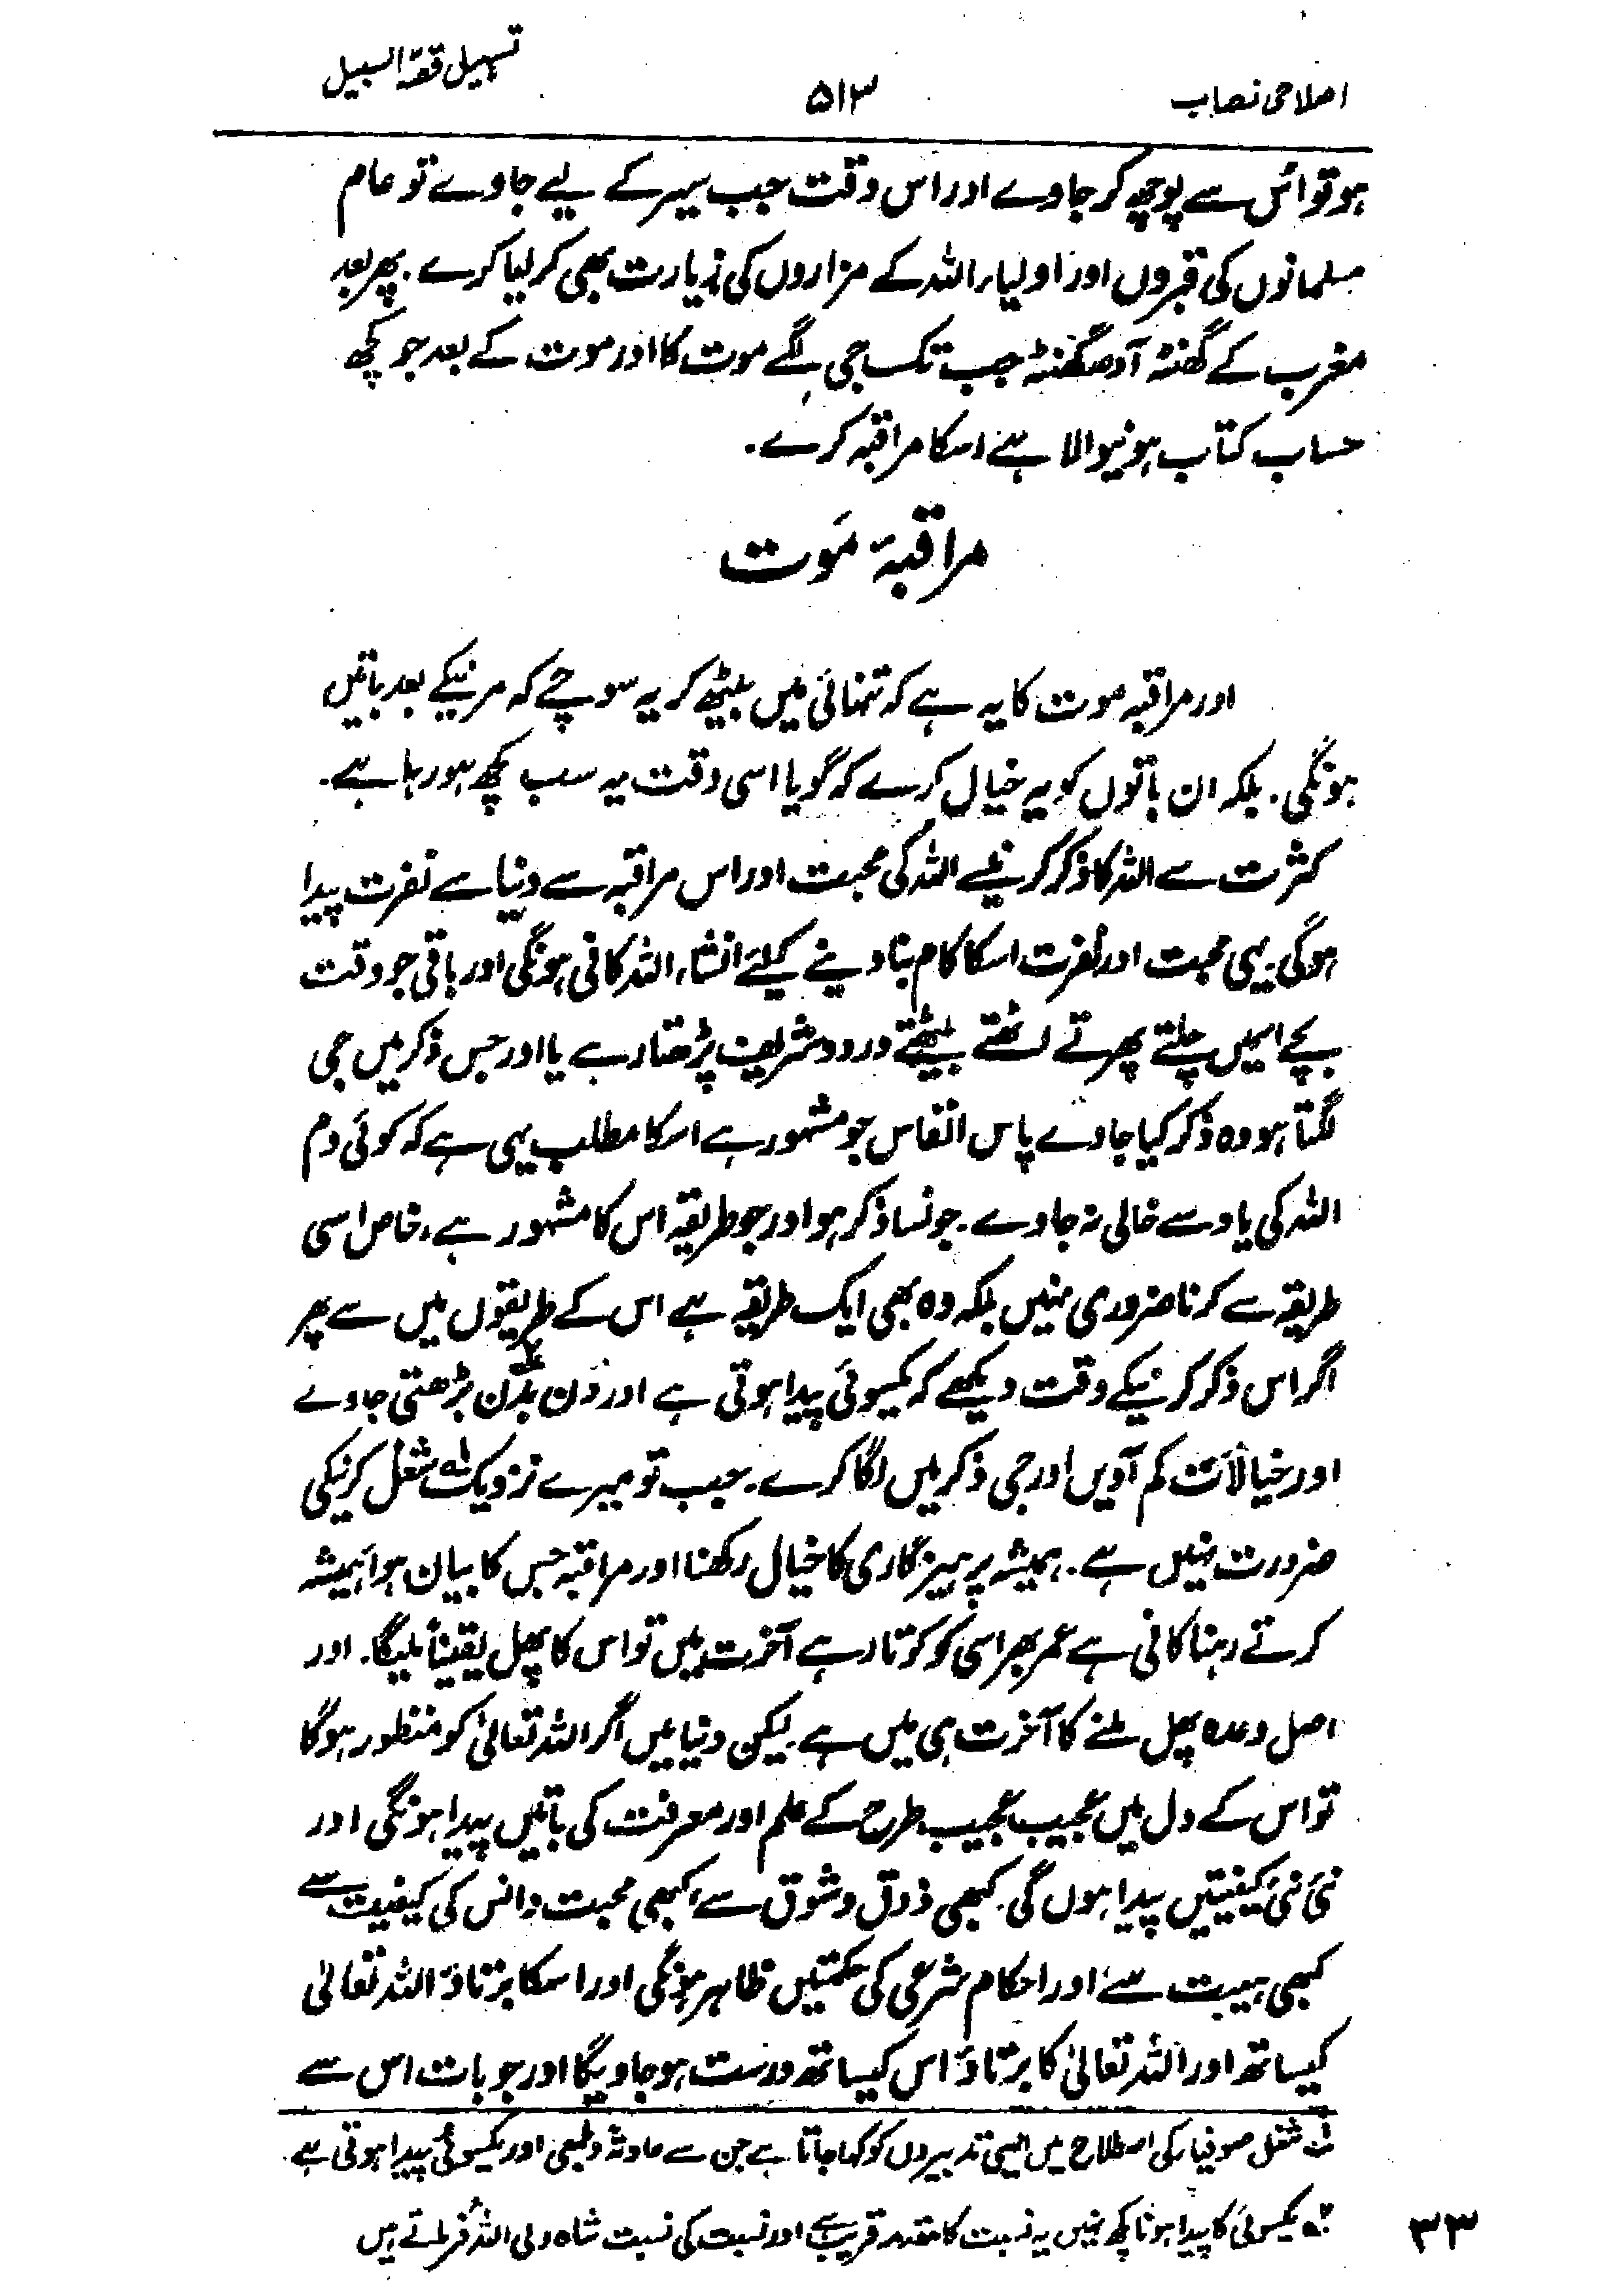 اصلاحی نصاب ۵۱۳ تسہیل قصد السبیل
ہو تو اُس سے پوچھ کر جاوے اور اس وقت جب سیر کے لیے جاوے تو عام
مسلمانوں کی قبروں اور اولیاء اللہ کے مزاروں کی زیارت بھی کر لیا کرے. پھر بعد
مغرب کے گھنٹہ آدھ گھنٹہ جب تک جی لگے موت کا اور موت کے بعد جو کچھ
حساب کتاب ہونیوالا ہے اسکا مراقبہ کرے.
مراقبۂ مَوت
اور مراقبہ موت کا یہ ہے کہ تنہائی میں بیٹھ کر یہ سوچے کہ مرنیکے بعد باتیں
ہونگی. بلکہ ان باتوں کو یہ خیال کرے کہ گویا اسی وقت یہ سب کچھ ہو رہا ہے.
کثرت سے اللہ کا ذکر کرنیسے اللہ کی محبت اور اس مراقبہ سے دنیا سے نفرت پیدا
ہوگی یہی محبت اور نفرت اسکا کام بنا دینے کیلئے انشاء اللہ کافی ہونگی اور باقی جو وقت
بچے اسمیں چلتے پھرتے اٹھتے بیٹھتے درود شریف پڑھتا رہے یا اور جس ذکر میں جی
لگتا ہو وہ ذکر کیا جاوے پاس انفاس جو مشہور ہے اسکا مطلب یہی ہے کہ کوئی دم
اللہ کی یاد سے خالی نہ جاوے. جونسا ذکر ہو اور جو طریقہ اس کا مشہور ہے، خاص اسی
طریقہ سے کرنا ضروری نہیں بلکہ وہ بھی ایک طریقہ ہے اس کے طریقوں میں سے پھر
اگر اس ذکر کرنیکے وقت دیکھے کہ یکسوئی پیدا ہوتی ہے اور دن بدن ۲ے بڑھتی جاوے
اور خیالات کم آویں اور جی ذکر میں لگا کرے. جب تو میرے نزدیک ۱ے شغل کرنیکی
ضرورت نہیں ہے. ہمیشہ پرہیزگاری کا خیال رکھنا اور مراقبہ جس کا بیان ہوا ہمیشہ
کرتے رہنا کافی ہے عمر بھر اسی کو کرتا رہے آخرت میں تو اس کا پھل یقیناً ملیگا. اور
اصل وعدہ پھل ملنے کا آخرت ہی میں ہے لیکن دنیا میں اگر اللہ تعالیٰ کو منظور ہوگا
تو اس کے دل میں عجیب عجیب طرح کے علم اور معرفت کی باتیں پیدا ہونگی اور
نئی نئی کیفیتیں پیدا ہوں گی. کبھی ذوق و شوق سے، کبھی محبت و انس کی کیفیت سے
کبھی ہیبت سے اور احکام شرعی کی حکمتیں ظاہر ہونگی اور اسکا برتاؤ اللہ تعالیٰ
کیساتھ اور اللہ تعالیٰ کا برتاؤ اس کیساتھ درست ہو جاویگا اور جو بات اس سے
۱ے شغل صوفیاء کی اصطلاح میں ایسی تدبیروں کو کہا جاتا ہے جن سے عادۃً و طبعی اور یکسوئی پیدا ہوتی ہے.
۲ے یکسوئی کا پیدا ہونا کچھ نہیں یہ نسبت کا مقدمہ قریب ہے اور نسبت کی نسبت شاہ ولی اللہ فرماتے ہیں
۳۳